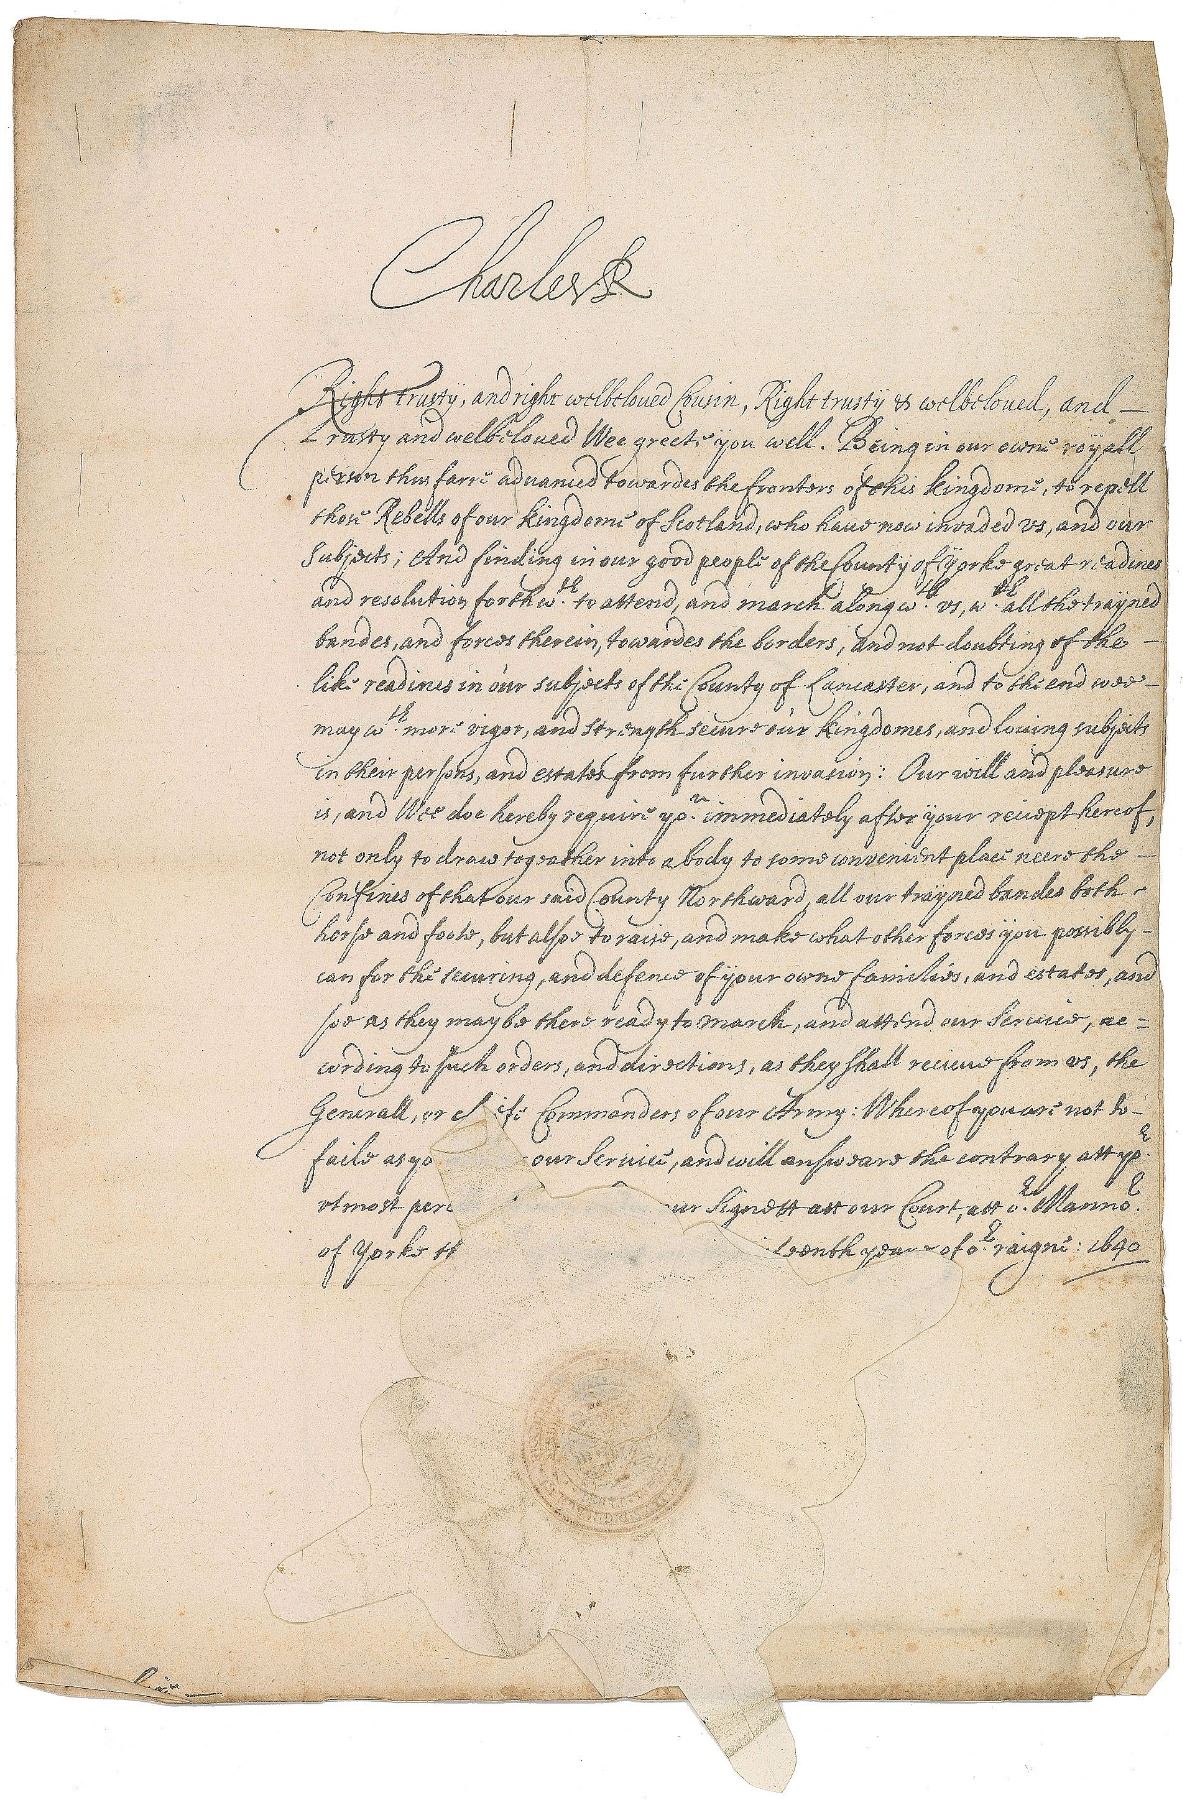 Charles R
Right trusty, and right welbeloved Cousin, Right trusty & welbeloved, and —
Trusty and welbeloved Wee greete you well. Being in our owne royall
person thus farre aduanced towardes the fronters of this kingdome, to repell
those Rebells of our kingdome of Scotland, who haue now invaded vs, and our
Subjects; And finding in our good people of the County of Yorke great readines
and resolution forthwth to attend, and march along wth vs, wth all the trayned
bandes, and forces therein, towardes the borders, and not doubting of the —
like readines in our subjects of the County of Lancaster, and to the end wee —
may wth more vigor, and strength secure our kingdomes, and louing subjects
in their persons, and estates from further invasion: Our will and pleasure
is, and Wee doe hereby require you immediately after your receipt hereof,
not only to draw togeather into a body to some convenient place neere the —
Confines of that our said County Northward, all our trayned bandes both -
horse and foote, but alsoe to raise, and make what other forces you possibly -
can for the securing, and defence of your owne families, and estates, and
soe as they may be there ready to march, and attend our Service, ac=
cording to such orders, and directions, as they shall receiue from vs, the
Generall, or Commanders of our Army: Whereof you are not to -
faile as yo our Service, and will answeare the contrary att yor
vtmost per ur Signett att our Court, att or Mannor
of Yorke th teenth yeare of or raigne: 1640